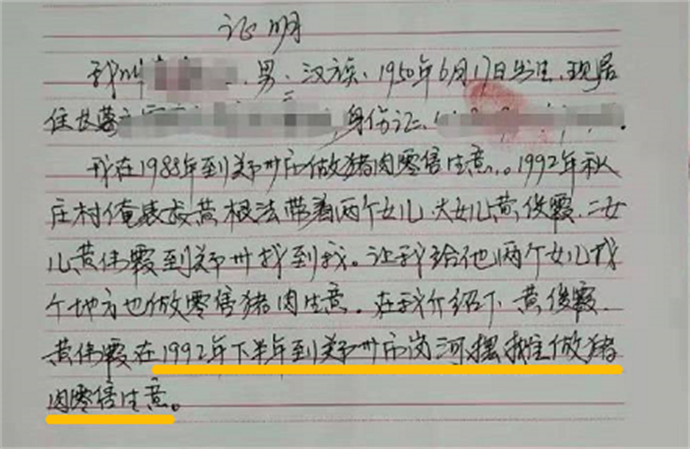 证明
我叫 男、汉族、1950年6月17日出生,现居
住长葛 身份证、
我在1988年到郑州市做猪肉零售生意。1992年秋
庄村俺表叔黄根法带着两个女儿,大女儿黄俊霞、二女
儿黄伟霞到郑州找到我。让我给他俩个女儿找
个地方也做零售猪肉生意。在我介绍下黄俊霞、
黄伟霞在1992年下半年到郑州市岗河摆摊做猪
肉零售生意。